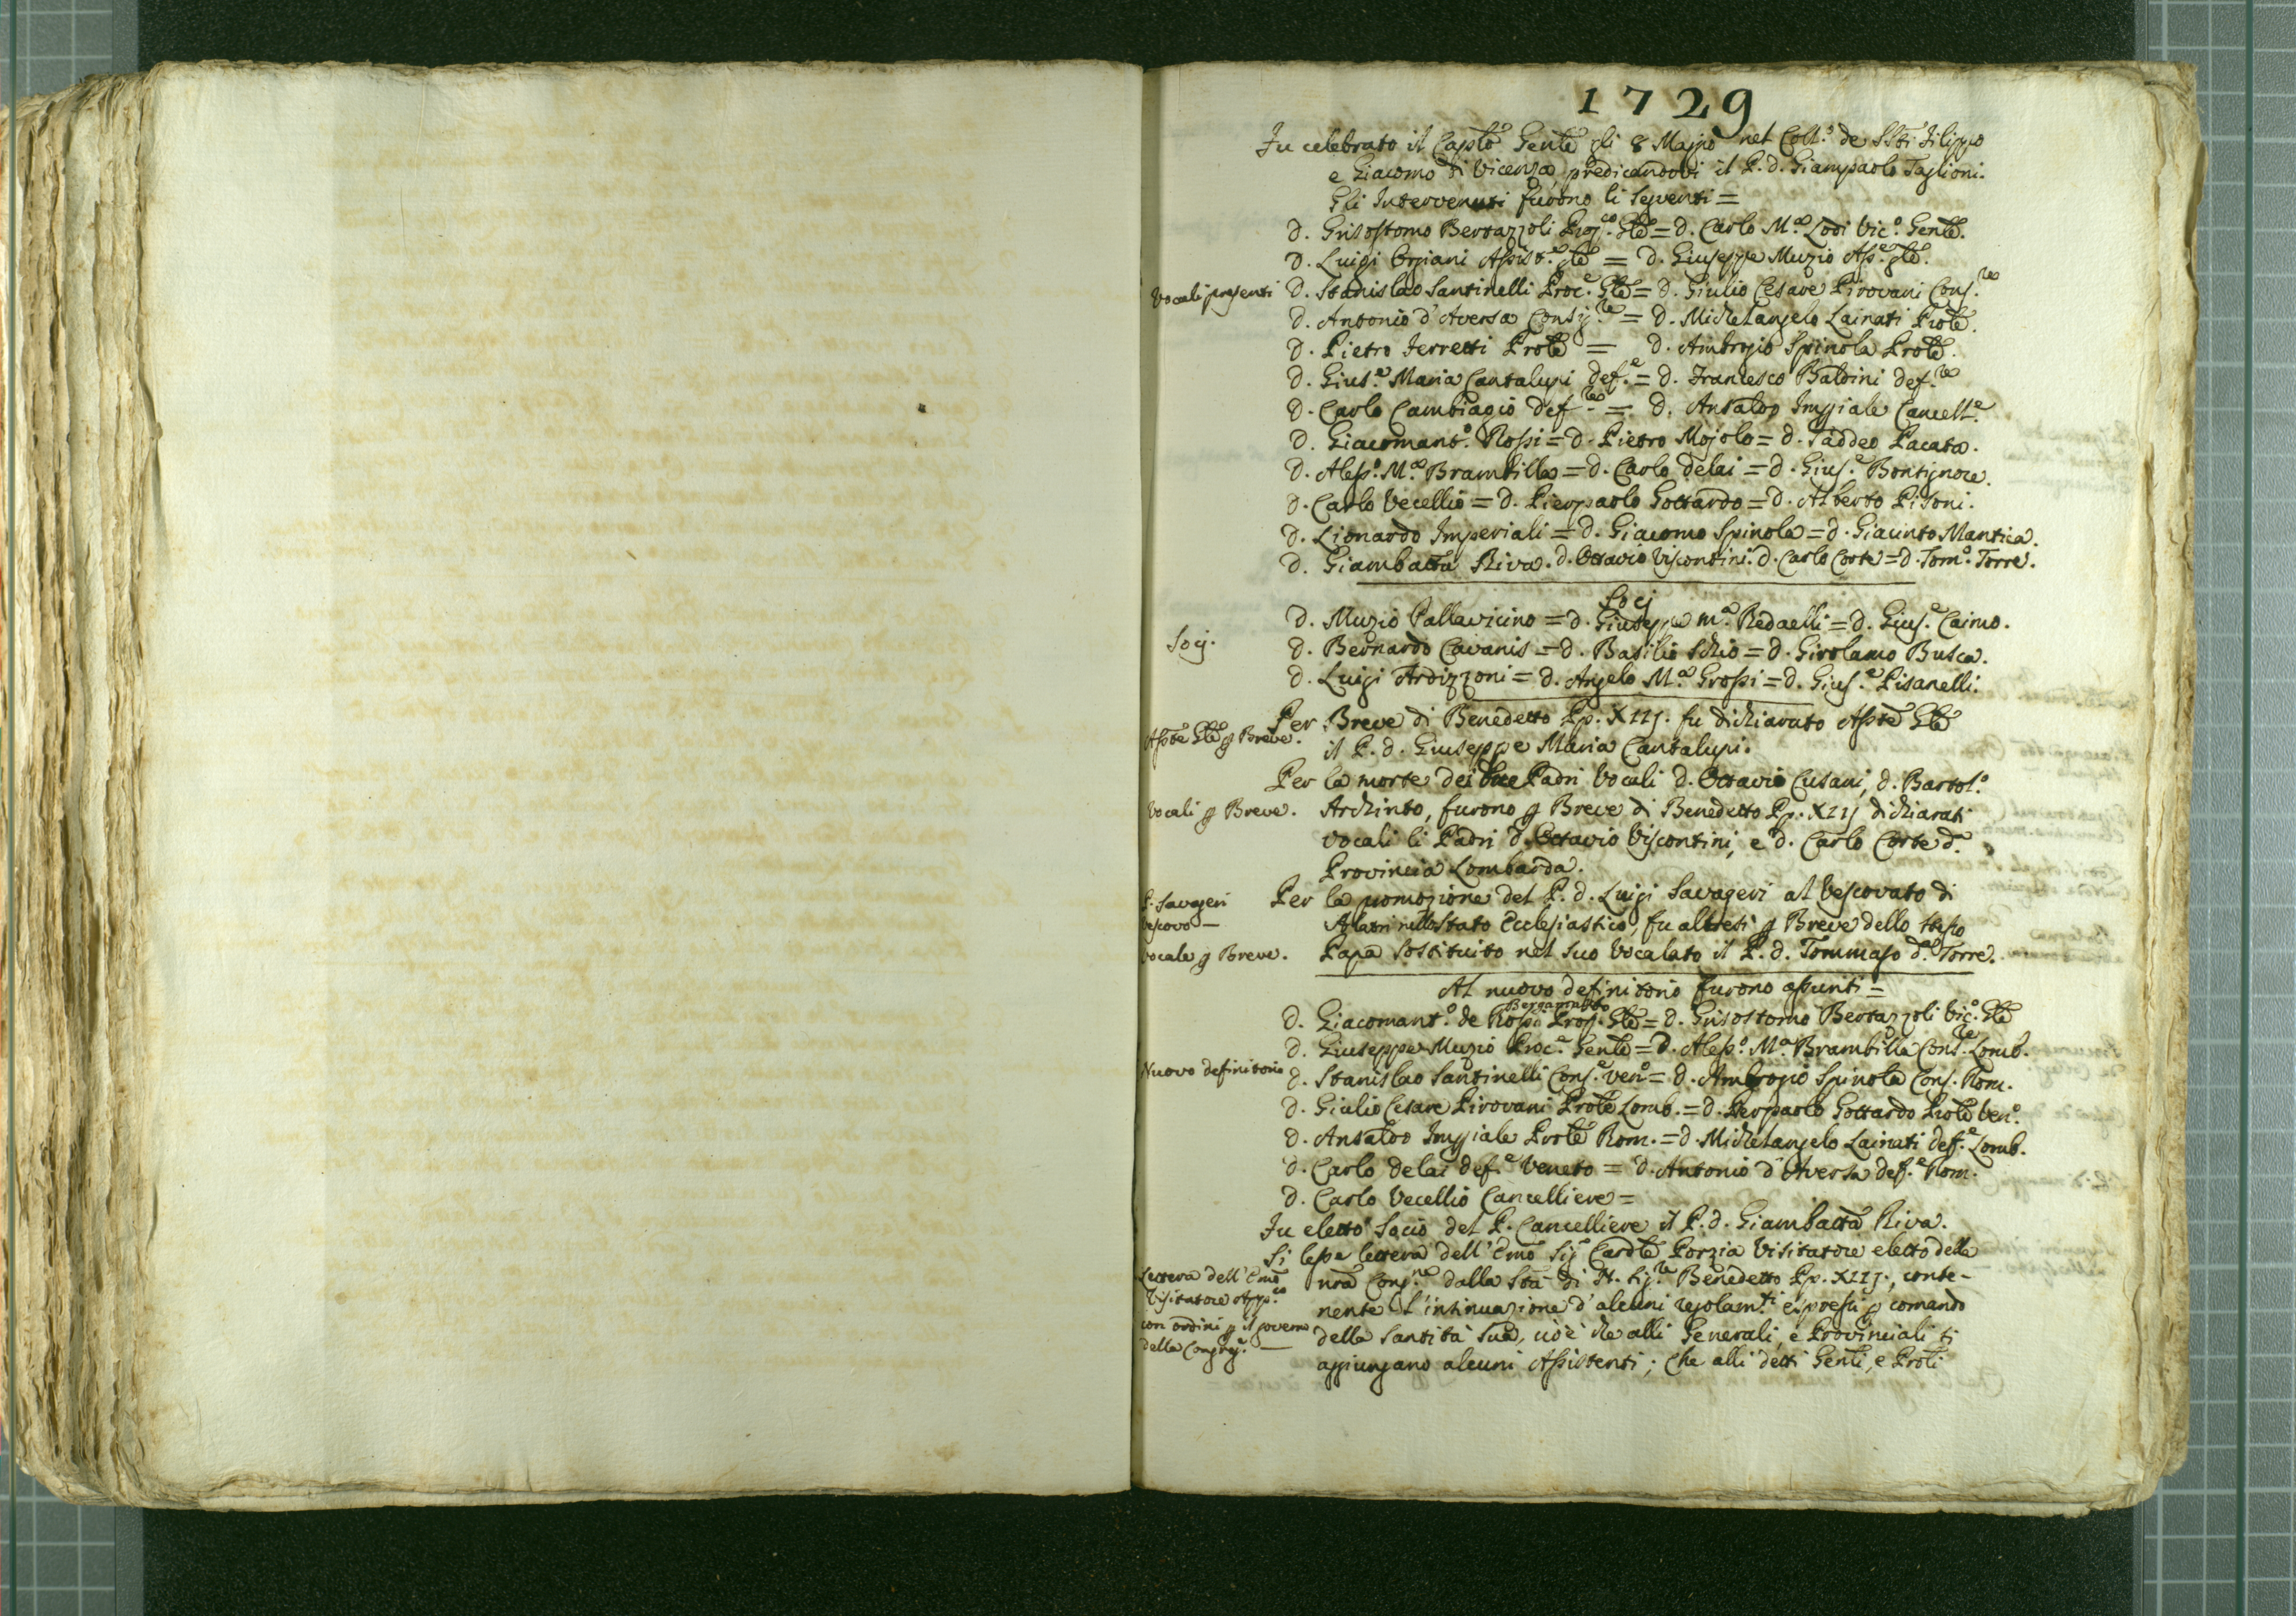 1729
Fu celebrato il Caplo Genle gli 8 Maggio nel Coll.o de SSti Filippo
e Giacomo di Vicenza, predicandovi il P. D. Giampaolo Taglioni.
Gli Intervenuti furono li seguenti =
Vocali presenti
D. Grisostomo Bertazzoli Prep.to Gle = D. Carlo M.a Lodi Vic.o Genle.
D. Luigi Orgiani Assist.e gle = D. Giuseppe Muzio Ass.e gle.
D. Stanislao Santinelli Proc.e Gle = D. Giulio Cesare Pirovani Cons.re
D. Antonio d'Aversa Consig.re = D. Michelangelo Lainati Prole.
D. Pietro Ferretti Prole = D. Ambrogio Spinola Prole.
D. Gius.e Maria Cantalupi def.e = D. Francesco Baldini def.re
D. Carlo Cambiagio def.re = D. Ansaldo Impiale Cancell.e
D. Giacomant.o Rossi = D. Pietro Mojolo = D. Taddeo Pacata.
D. Aless.o M.a Brambilla = D. Carlo Delai = D. Gius.e Bontignore.
D. Carlo Vecellio = D. Pierpaolo Gottardo = D. Alberto Pisoni.
D. Lionardo Imperiali = D. Giacomo Spinola = D. Giacinto Mantica.
D. Giambatta Riva. D. Ottavio Viscontini. D. Carlo Corte = D. Tom.o Torre.
Socj
Socj.
D. Muzio Pallavicino = D. Giuseppe M.a Redaelli = D. Gius.e Caimo.
D. Bernardo Cavanis = D. Basilio Schio = D. Girolamo Busca.
D. Luigi Ardizzoni = D. Angelo M.a Grossi = D. Gius.e Pisanelli.
Asste Gle p Breve.
Per Breve di Benedetto Pp. XIIJ. fu dichiarato Asste Gle
il P. D. Giuseppe Maria Cantalupi.
Vocali p Breve.
Per la morte dei due Padri Vocali D. Ottavio Cusani, D. Bartol.o
Archinto, furono p Breve di Benedetto Pp. XIIJ dichiarati
Vocali li Padri D. Ottavio Viscontini, e D. Carlo Corte d.a
Provincia Lombarda.
P. Savageri
Vescovo —
Vocale p Breve.
Per la promozione del P. D. Luigi Savageri al Vescovato di
nello Stato Ecclesiastico, fu altresì p Breve dello stesso
Papa sostituito nel suo Vocalato il P. D. Tommaso d.a Torre.
Al nuovo definitorio furono assunti =
Nuovo definitorio
Bergamasco
D. Giacomant.o de Rossi Prep. Gle = D. Grisostomo Bertazzoli Vic.o Gle
D. Giuseppe Muzio Proc.e Genle = D. Aless.o M.a Brambilla Cons.re Lomb.
D. Stanislao Santinelli Cons.e Ven.o = D. Ambrogio Spinola Cons. Rom.
D. Giulio Cesare Pirovani Prole Lomb. = D. Pierpaolo Gottardo Prole Ven.o
D. Ansaldo Impiale Prole Rom. = D. Michelangelo Lainati deff.e Lomb.
D. Carlo Delai def.e Veneto = D. Antonio d'Aversa def.e Rom.
D. Carlo Vecellio Cancelliere =
Fu eletto Socio del P. Cancelliere il P. D. Giambatta Riva.
Lettera dell'Emo
Visitatore App.co
con ordini p il governo
della Congreg.e —
Si lesse lettera dell'Emo Sig.e Cardle Porzia Visitatore eletto della
nra Cong.ne dalla Sta di N. Sig.re Benedetto Pp. XIIJ., conte-
nente l'intinuazione d'alcuni regolam.ti espressi p comando
della Santità Sua, cioè che alli Generali, e Provinciali si
aggiungano alcuni Assistenti; Che alli detti Genli, e Proli